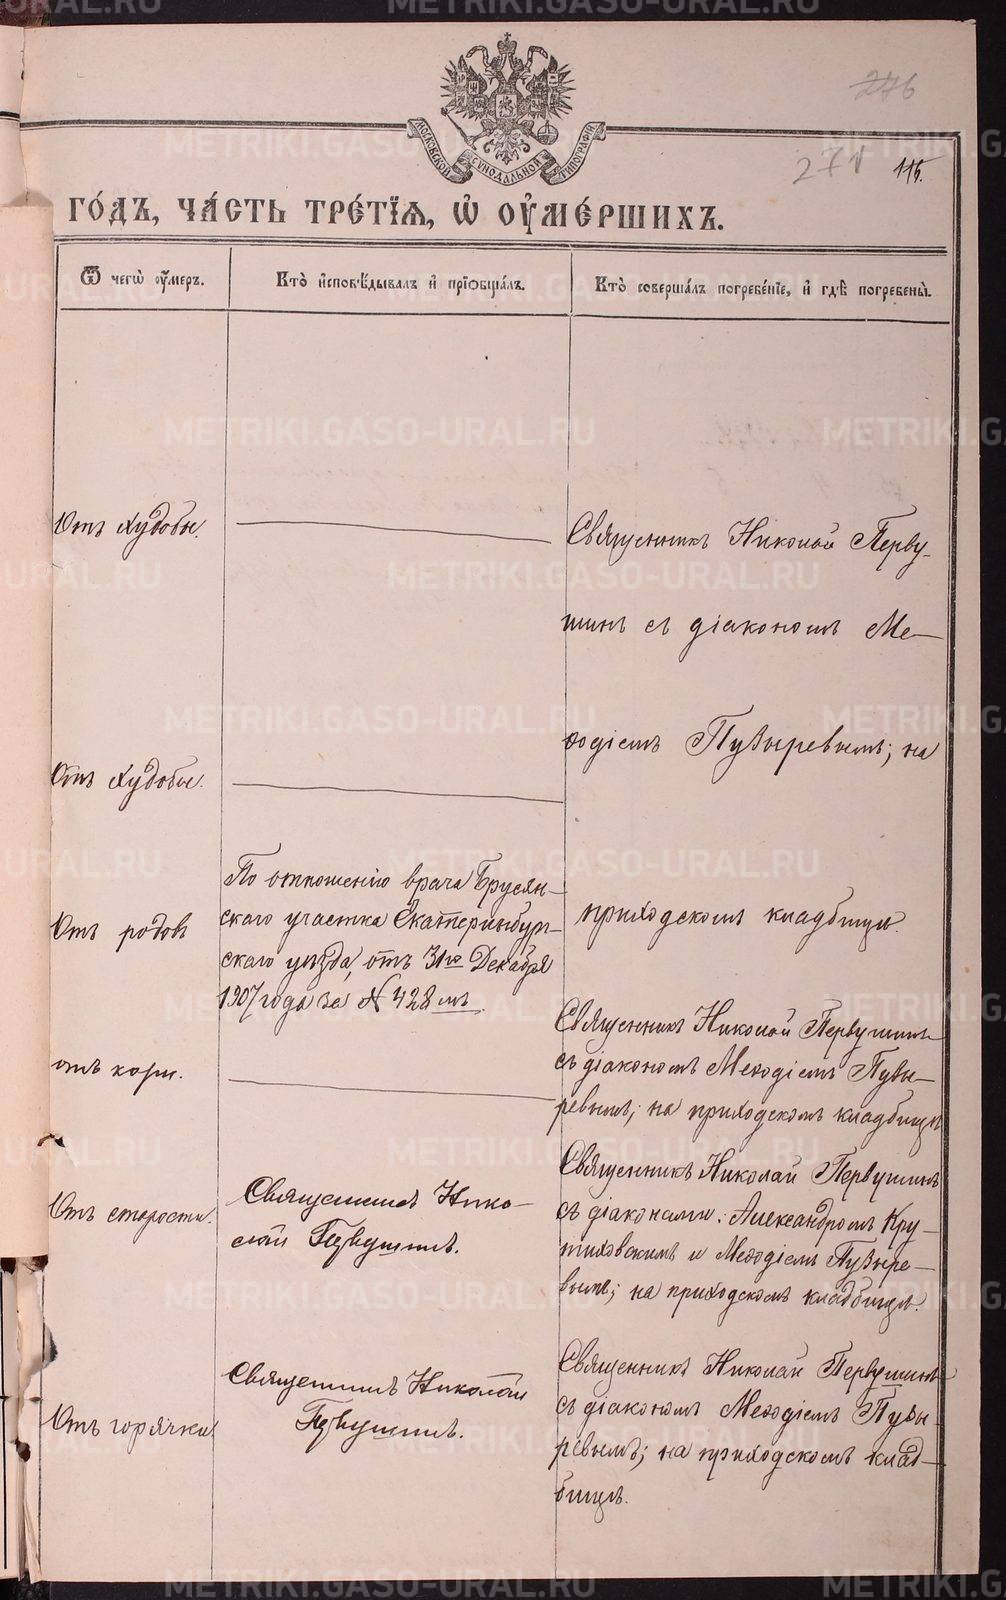 276
271 115.
МОСКОВСКОЙ СѴНОДАЛЬНОЙ ТИПОГРАФІИ
ГО́ДЪ, ЧА́СТЬ ТРЕ́ТІѦ, Ѡ҆ ОУ҆МЕ́РШИХЪ.
Ѿ чегѡ̀ оу҆́меръ.
Кто̀ и҆сповѣ́дывалъ и҆ прїѡбща́лъ.
Кто̀ соверша́лъ погребе́нїе, и҆ гдѣ̀ погребены̀.
Отъ худобы.
Священникъ Николай Перву-
шинъ съ діакономъ Ме-
ѳодіемъ Пузыревымъ; на
приходскомъ кладбищѣ.
Отъ худобы.
Отъ родовъ
По отношенію врача Брусян-
скаго участка Екатеринбург-
скаго уѣзда, отъ 31го Декабря
1907 года за № 428мъ
отъ кори.
Священникъ Николай Первушинъ
съ діакономъ Меѳодіемъ Пузы-
ревымъ; на приходскомъ кладбищѣ
Отъ старости.
Священникъ Нико-
лай Первушинъ.
Священникъ Николай Первушинъ
съ діаконами: Александромъ Кру-
тиховскимъ и Меѳодіемъ Пузыре-
вымъ; на приходскомъ кладбищѣ.
Отъ горячки
Священникъ Николай
Первушинъ.
Священникъ Николай Первушинъ
съ діакономъ Меѳодіемъ Пузы-
ревымъ; на приходскомъ клад-
бищѣ.
METRIKI.GASO-URAL.RU